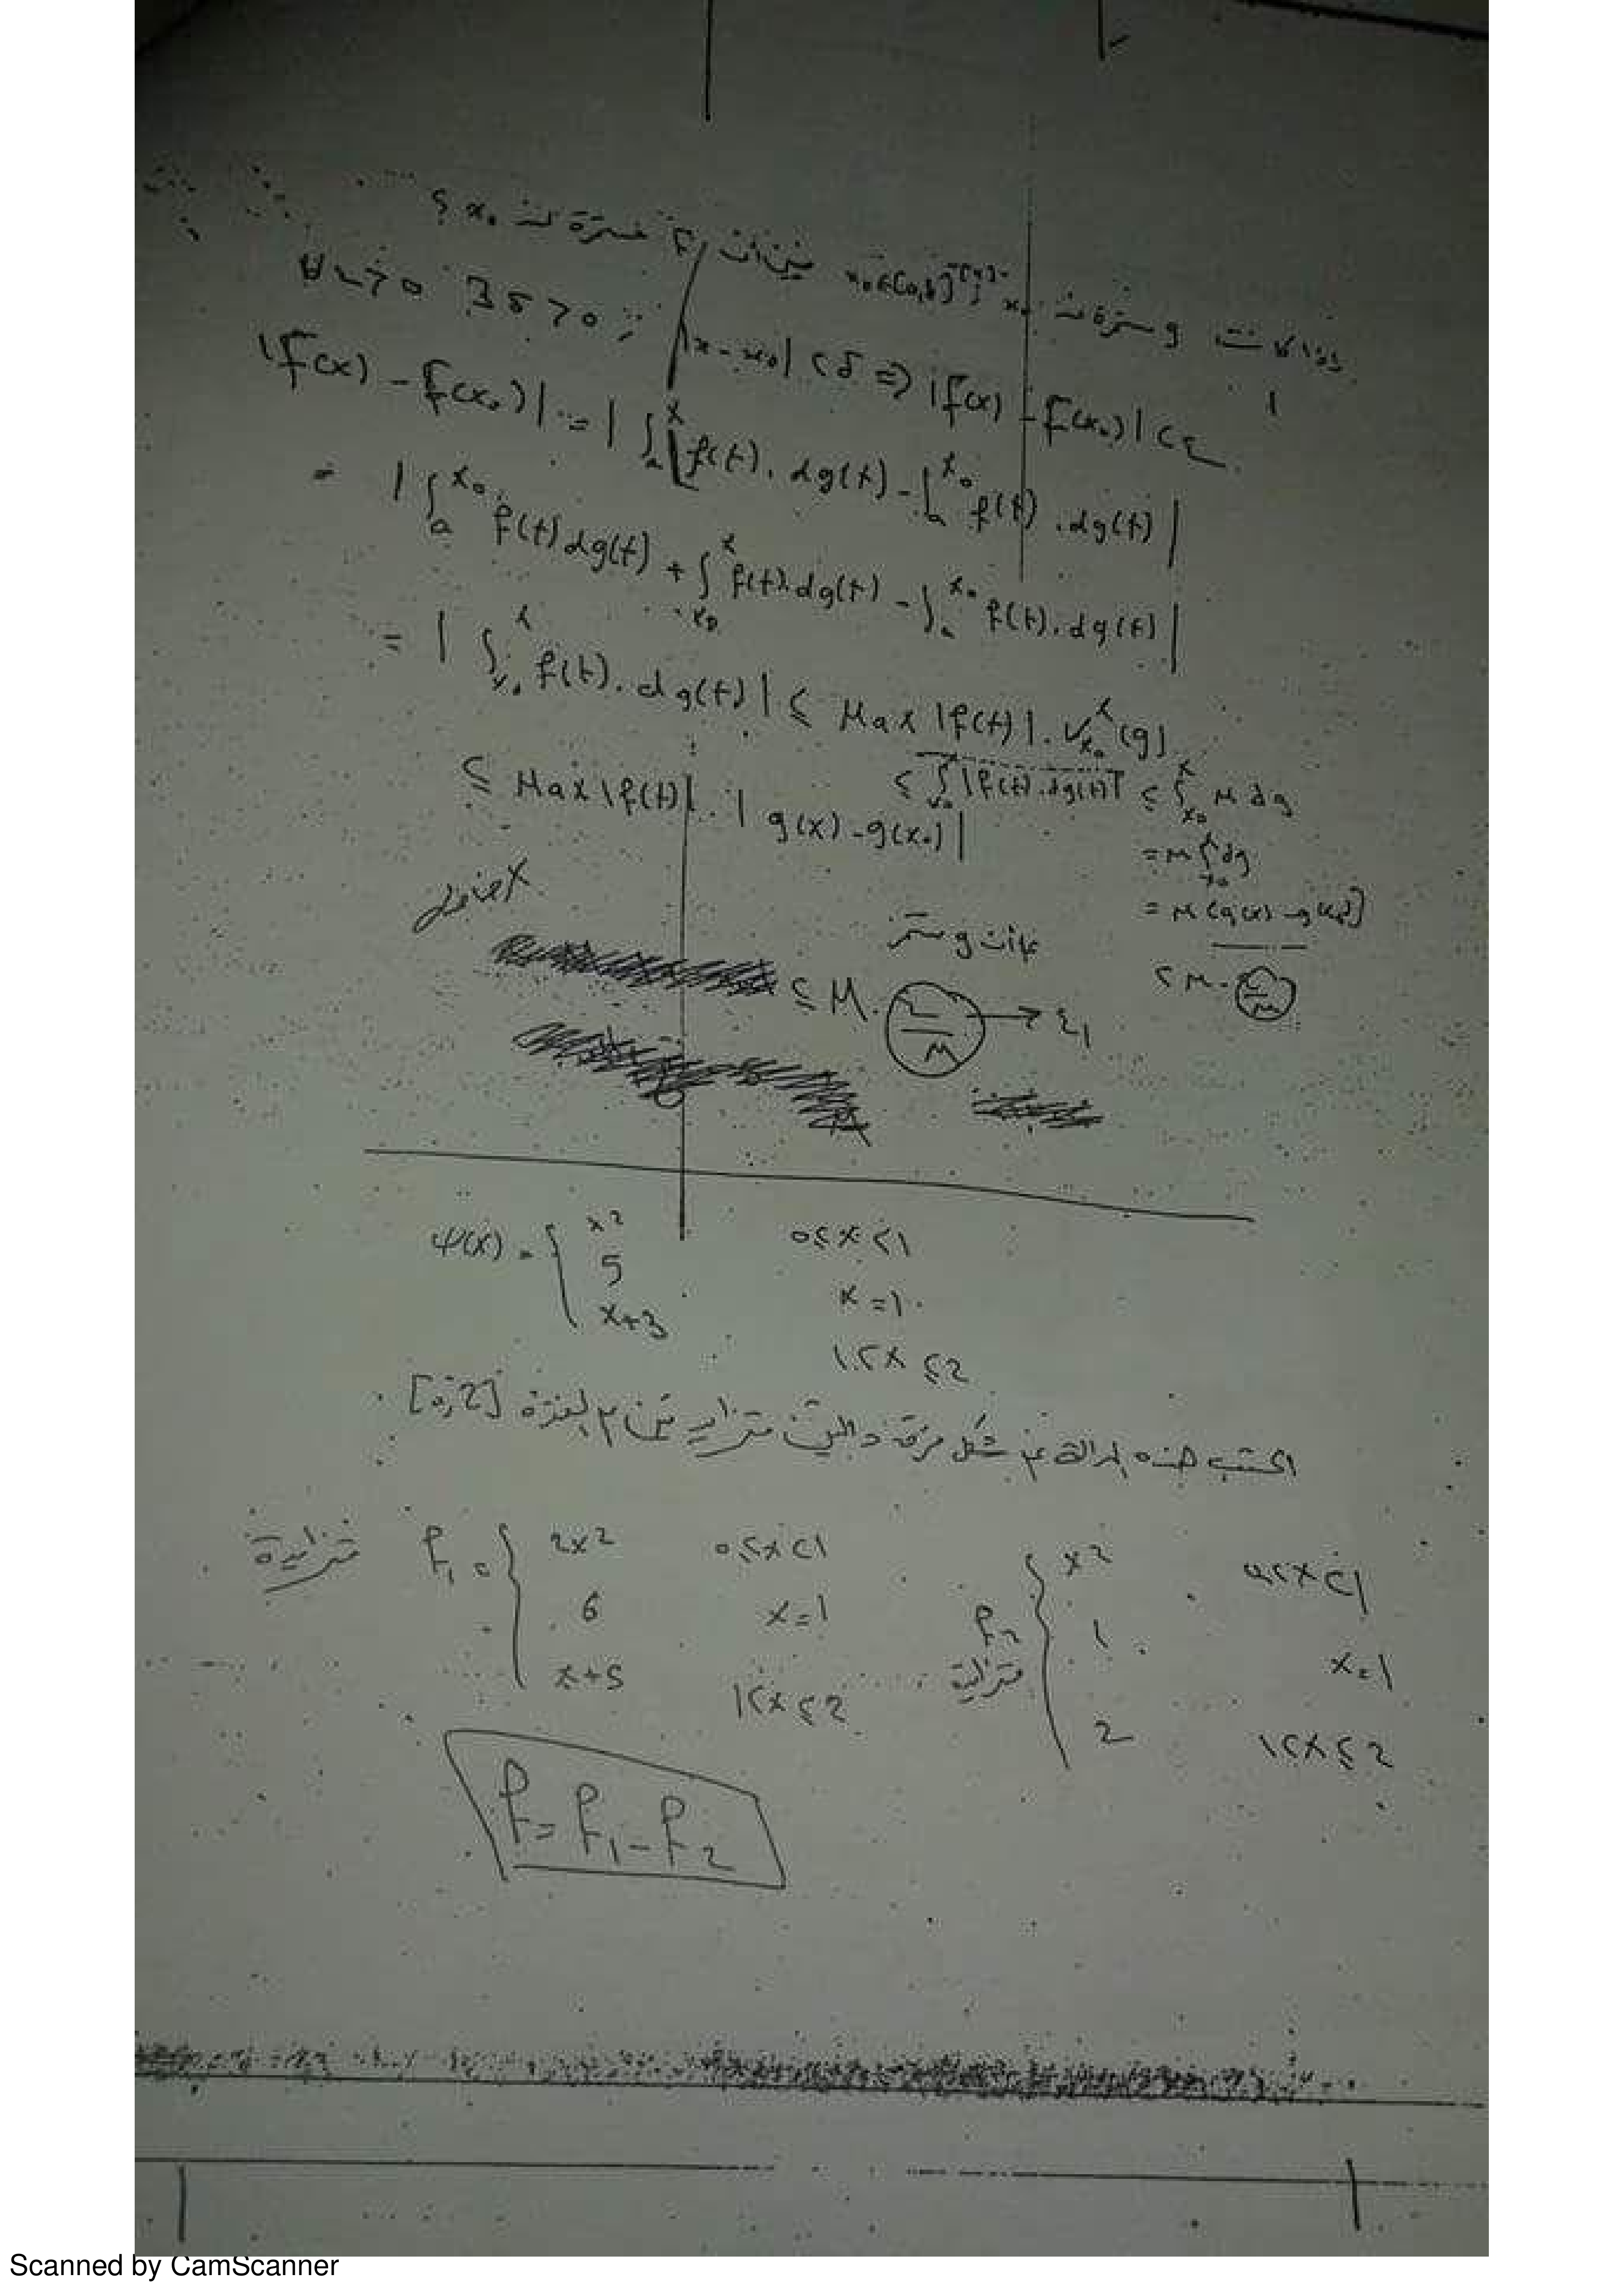 وإذا كانت g مستمرة عند x₀ x₀∈[a,b] فإن F مستمرة عند x₀ ؟
∀ε>0 ∃δ>0 ; |x-x₀|<δ ⇒ |F(x)-F(x₀)|<ε
|F(x)-F(x₀)| = |∫ₐˣ f(t).dg(t) - ∫ₐˣ⁰ f(t).dg(t)|
= |∫ₐˣ⁰ f(t)dg(t) + ∫ₓ₀ˣ f(t).dg(t) - ∫ₐˣ⁰ f(t).dg(t)|
= |∫ₓ₀ˣ f(t).dg(t)| ≤ Max|f(t)|.Vₓ₀ˣ(g)
≤ ∫ₓ₀ˣ |f(t).dg(t)| ≤ ∫ₓ₀ˣ M dg
≤ Max|f(t)|.|g(x)-g(x₀)|
= M ∫ₓ₀ˣ dg
= M(g(x)-g(x₀))
بما أن g مستمر
≤ M. ε/M → ε₁
≤ M. ε/M
ψ(x) = { x² 0≤x<1
5 x=1
x+3 1<x≤2
اكتب هذه الدالة على شكل فرق دالتين متزايدتين على الفترة [0,2]
متزايدة f₁ = { 2x² 0≤x<1
6 x=1
x+5 1<x≤2
f₂ متزايدة { x² 0≤x<1
1 x=1
2 1<x≤2
f = f₁ - f₂
Scanned by CamScanner